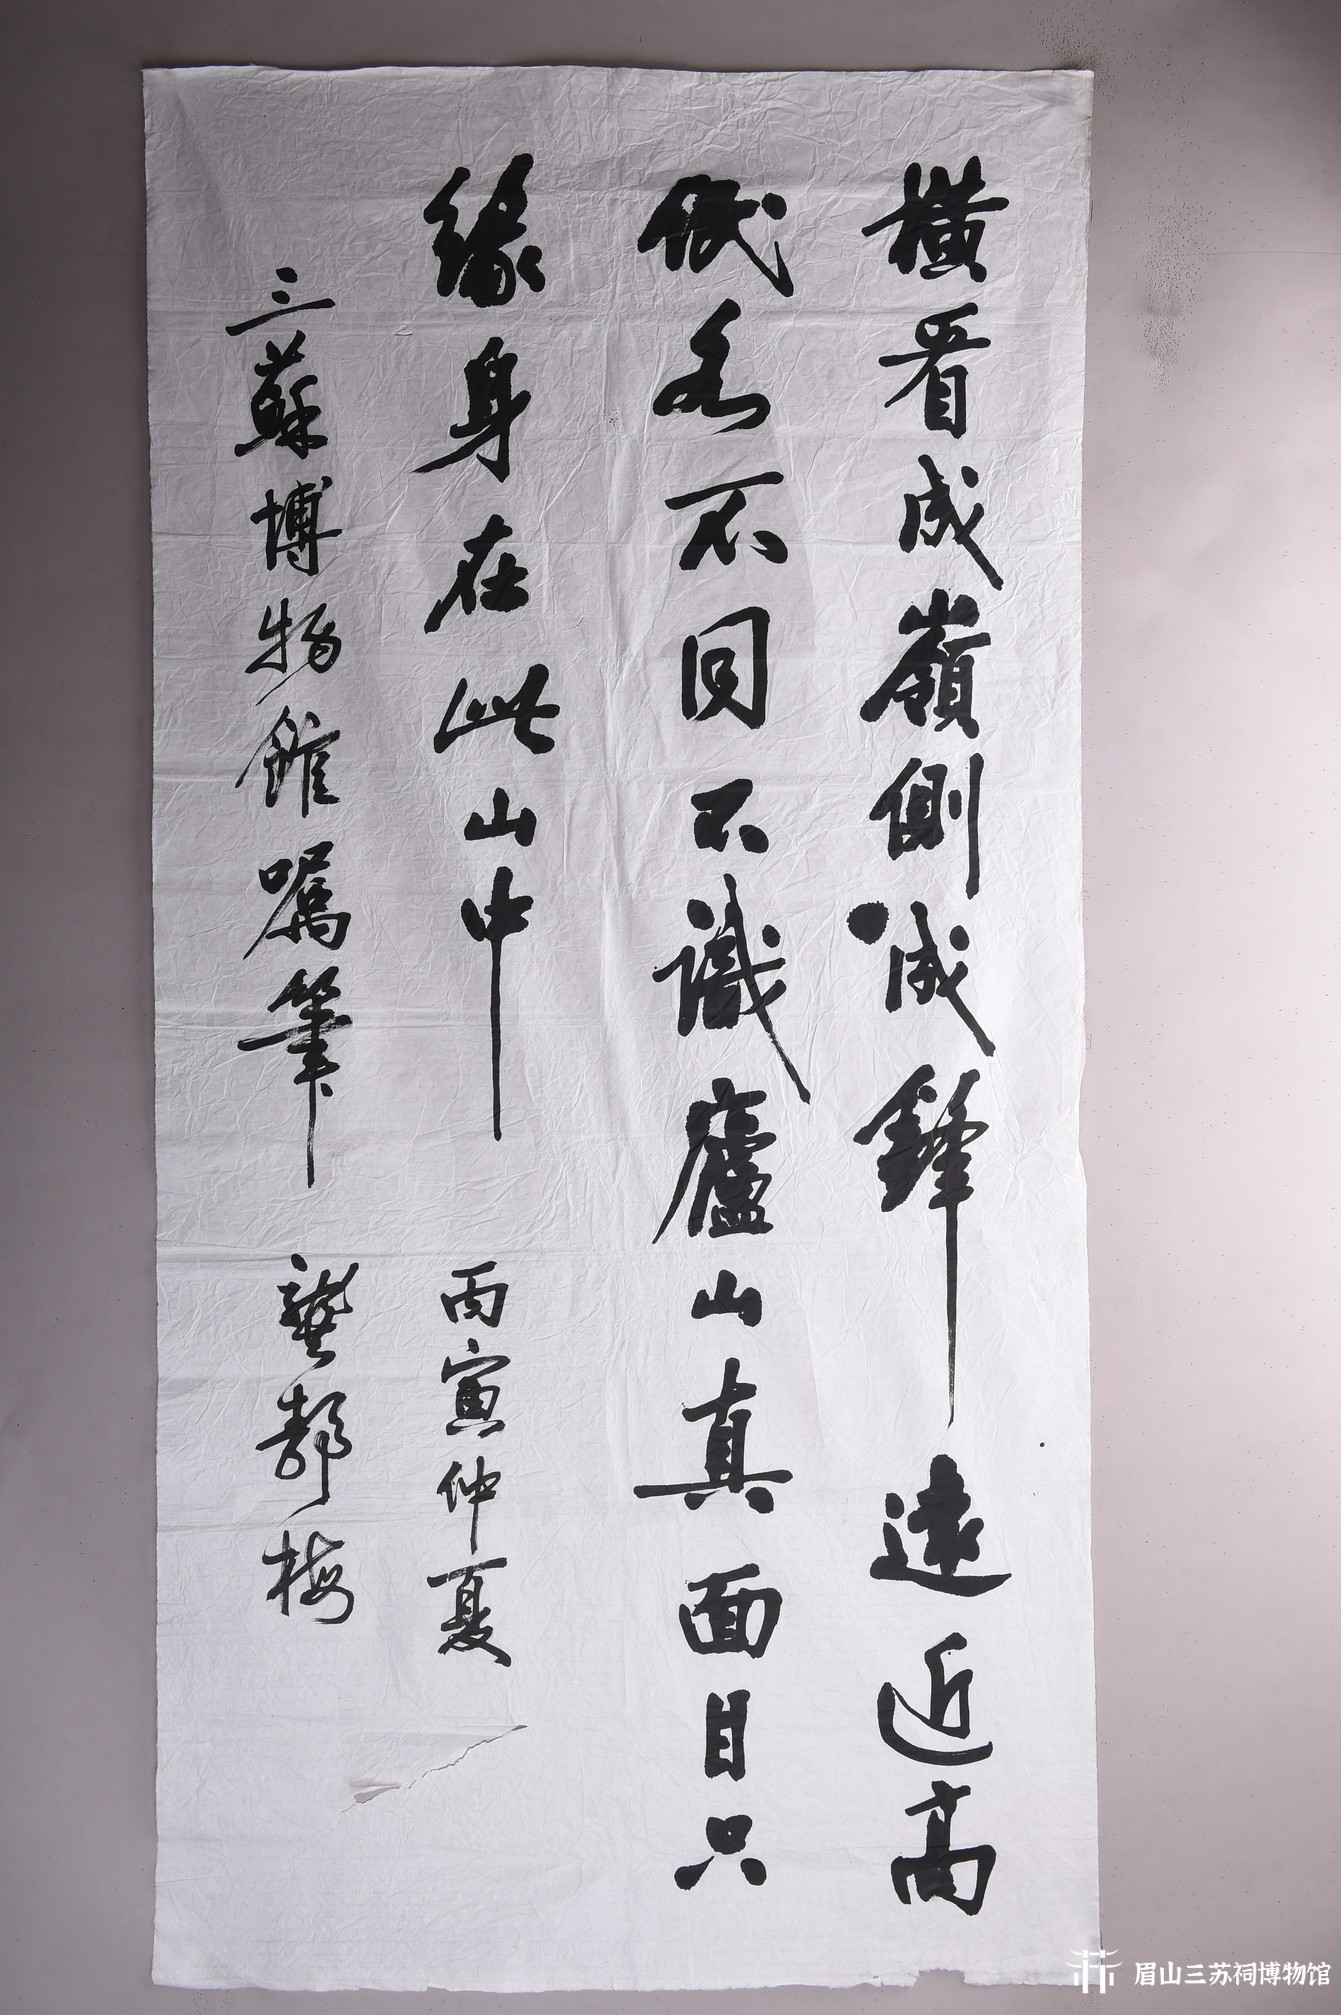 橫看成嶺側成鋒遠近高
低各不同不識廬山真面目只
緣身在此山中 丙寅仲夏
三蘇博物館囑筆 龔 梅
眉山三苏祠博物馆